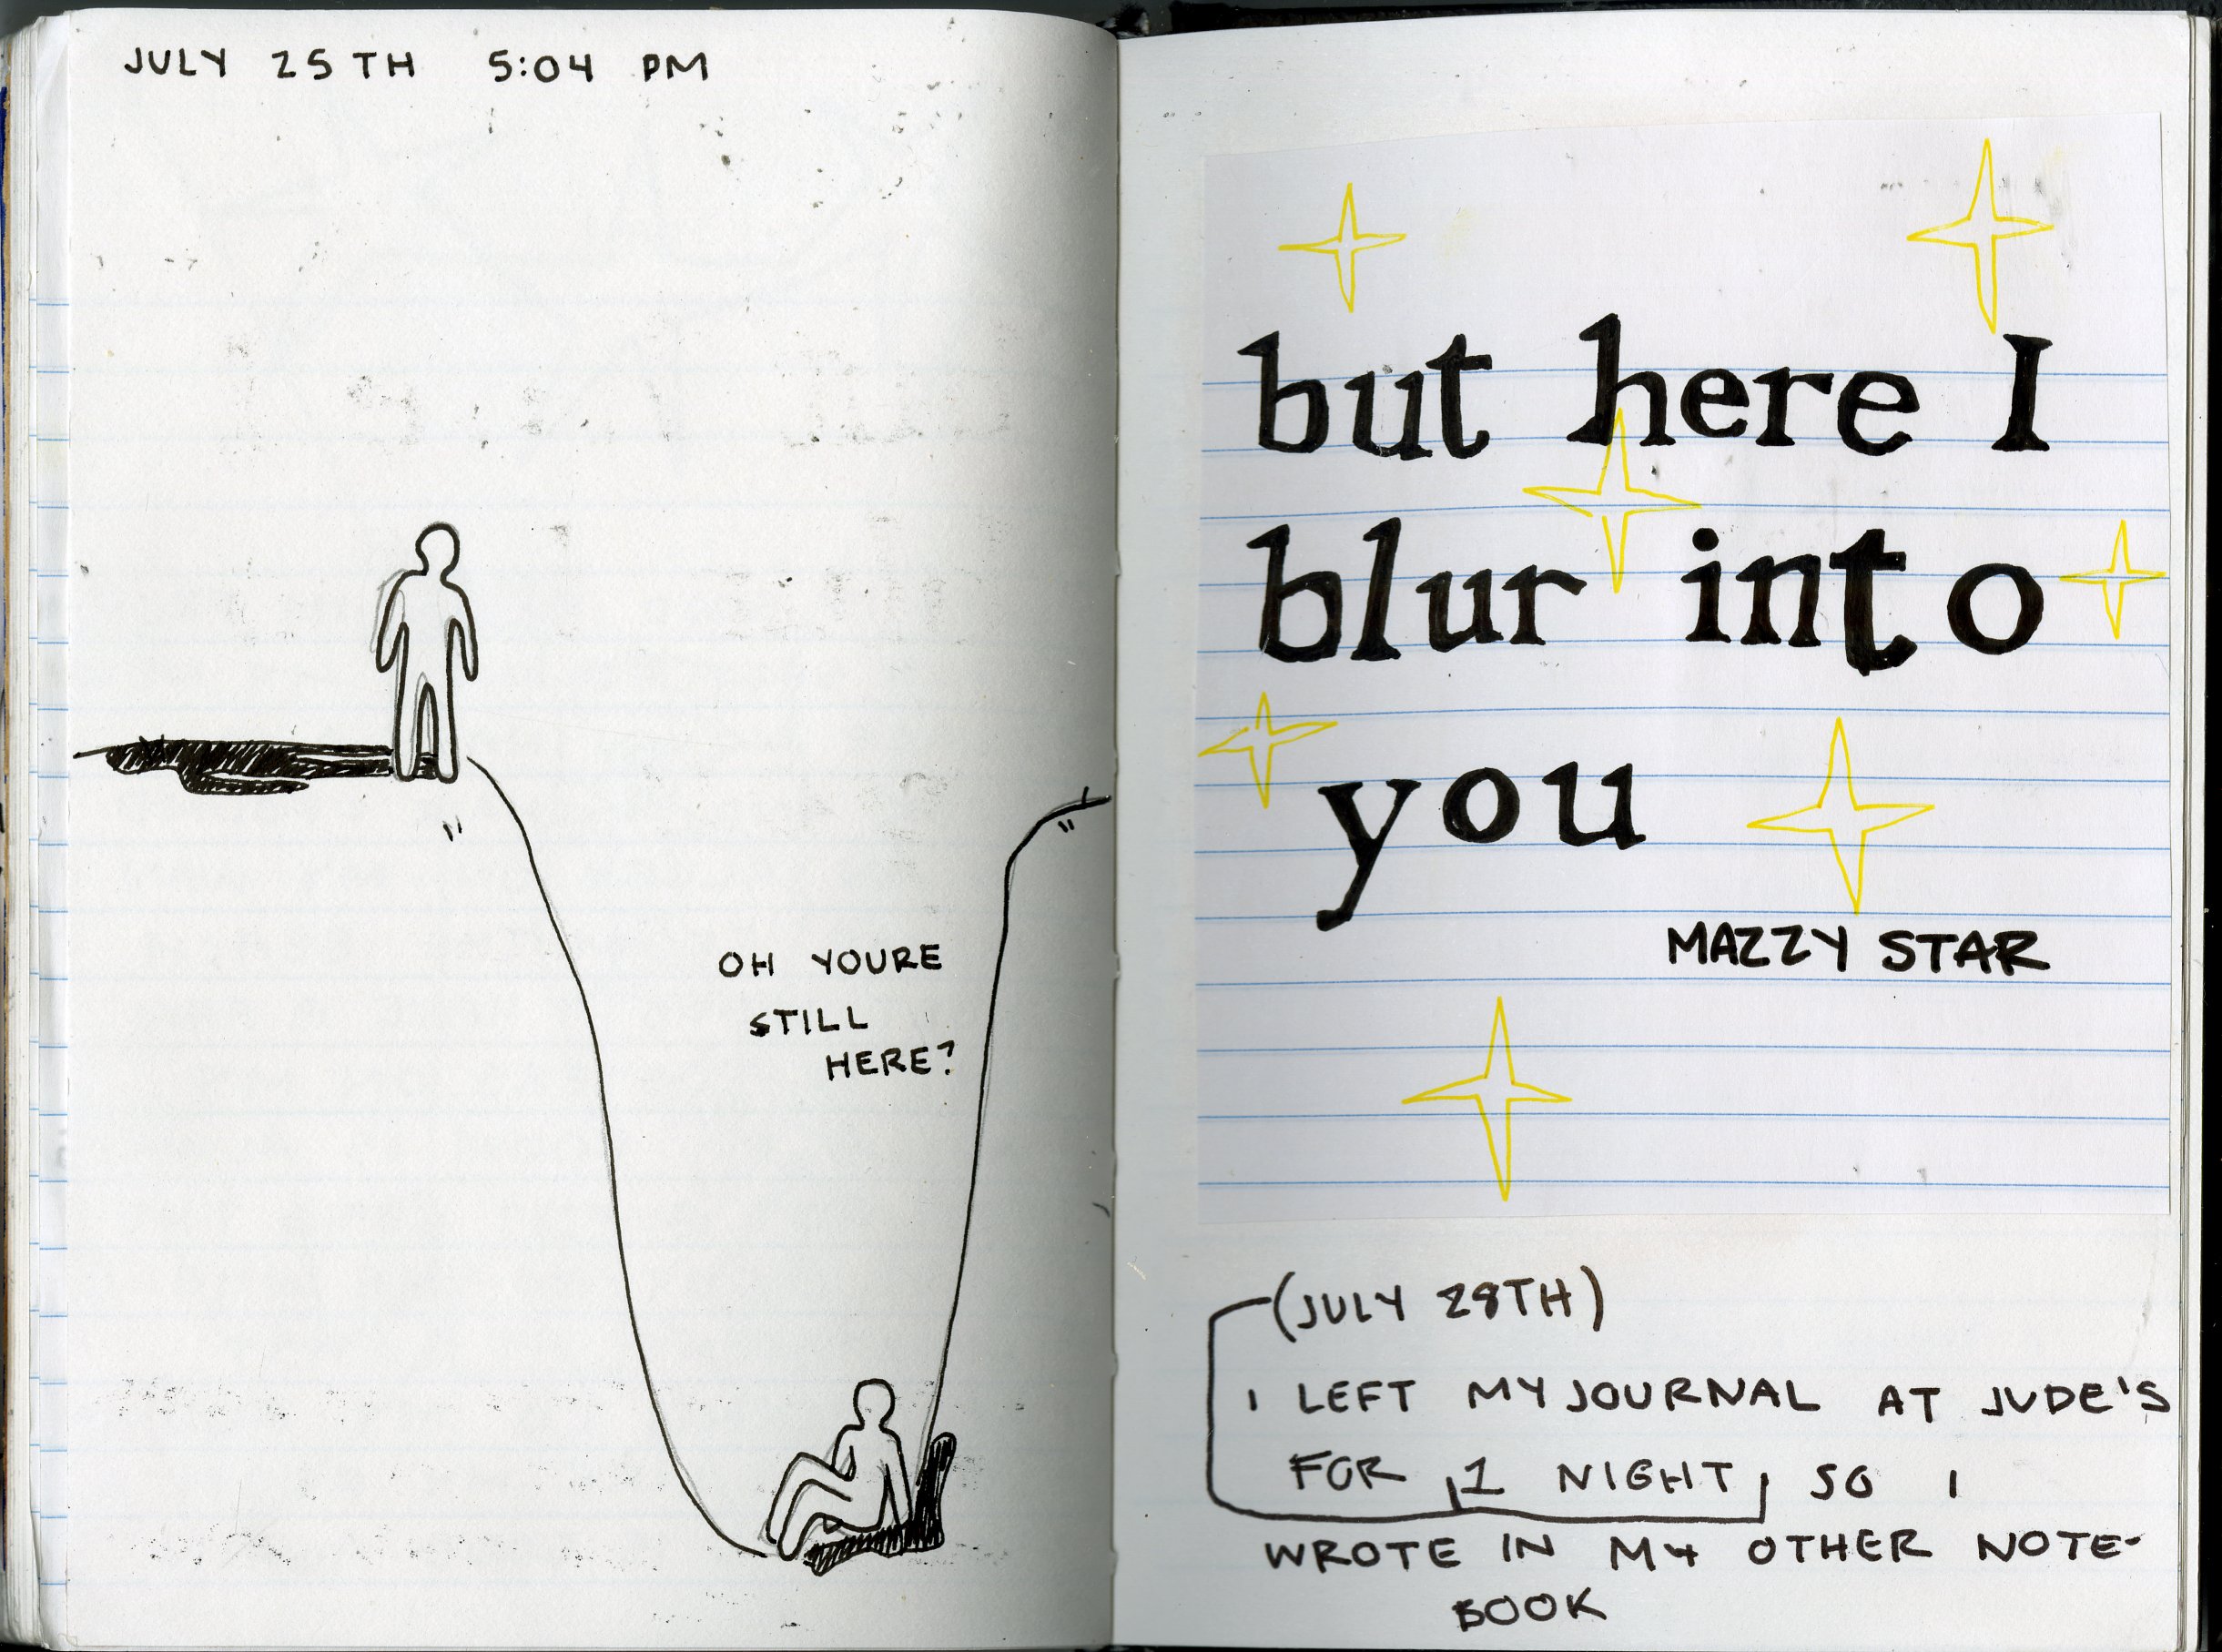 JULY 25TH 5:04 PM
OH YOURE
STILL
HERE?
but here I
blur into
you
MAZZY STAR
(JULY 28TH)
I LEFT MY JOURNAL AT JUDE'S
FOR 1 NIGHT, SO I
WROTE IN MY OTHER NOTE-
BOOK